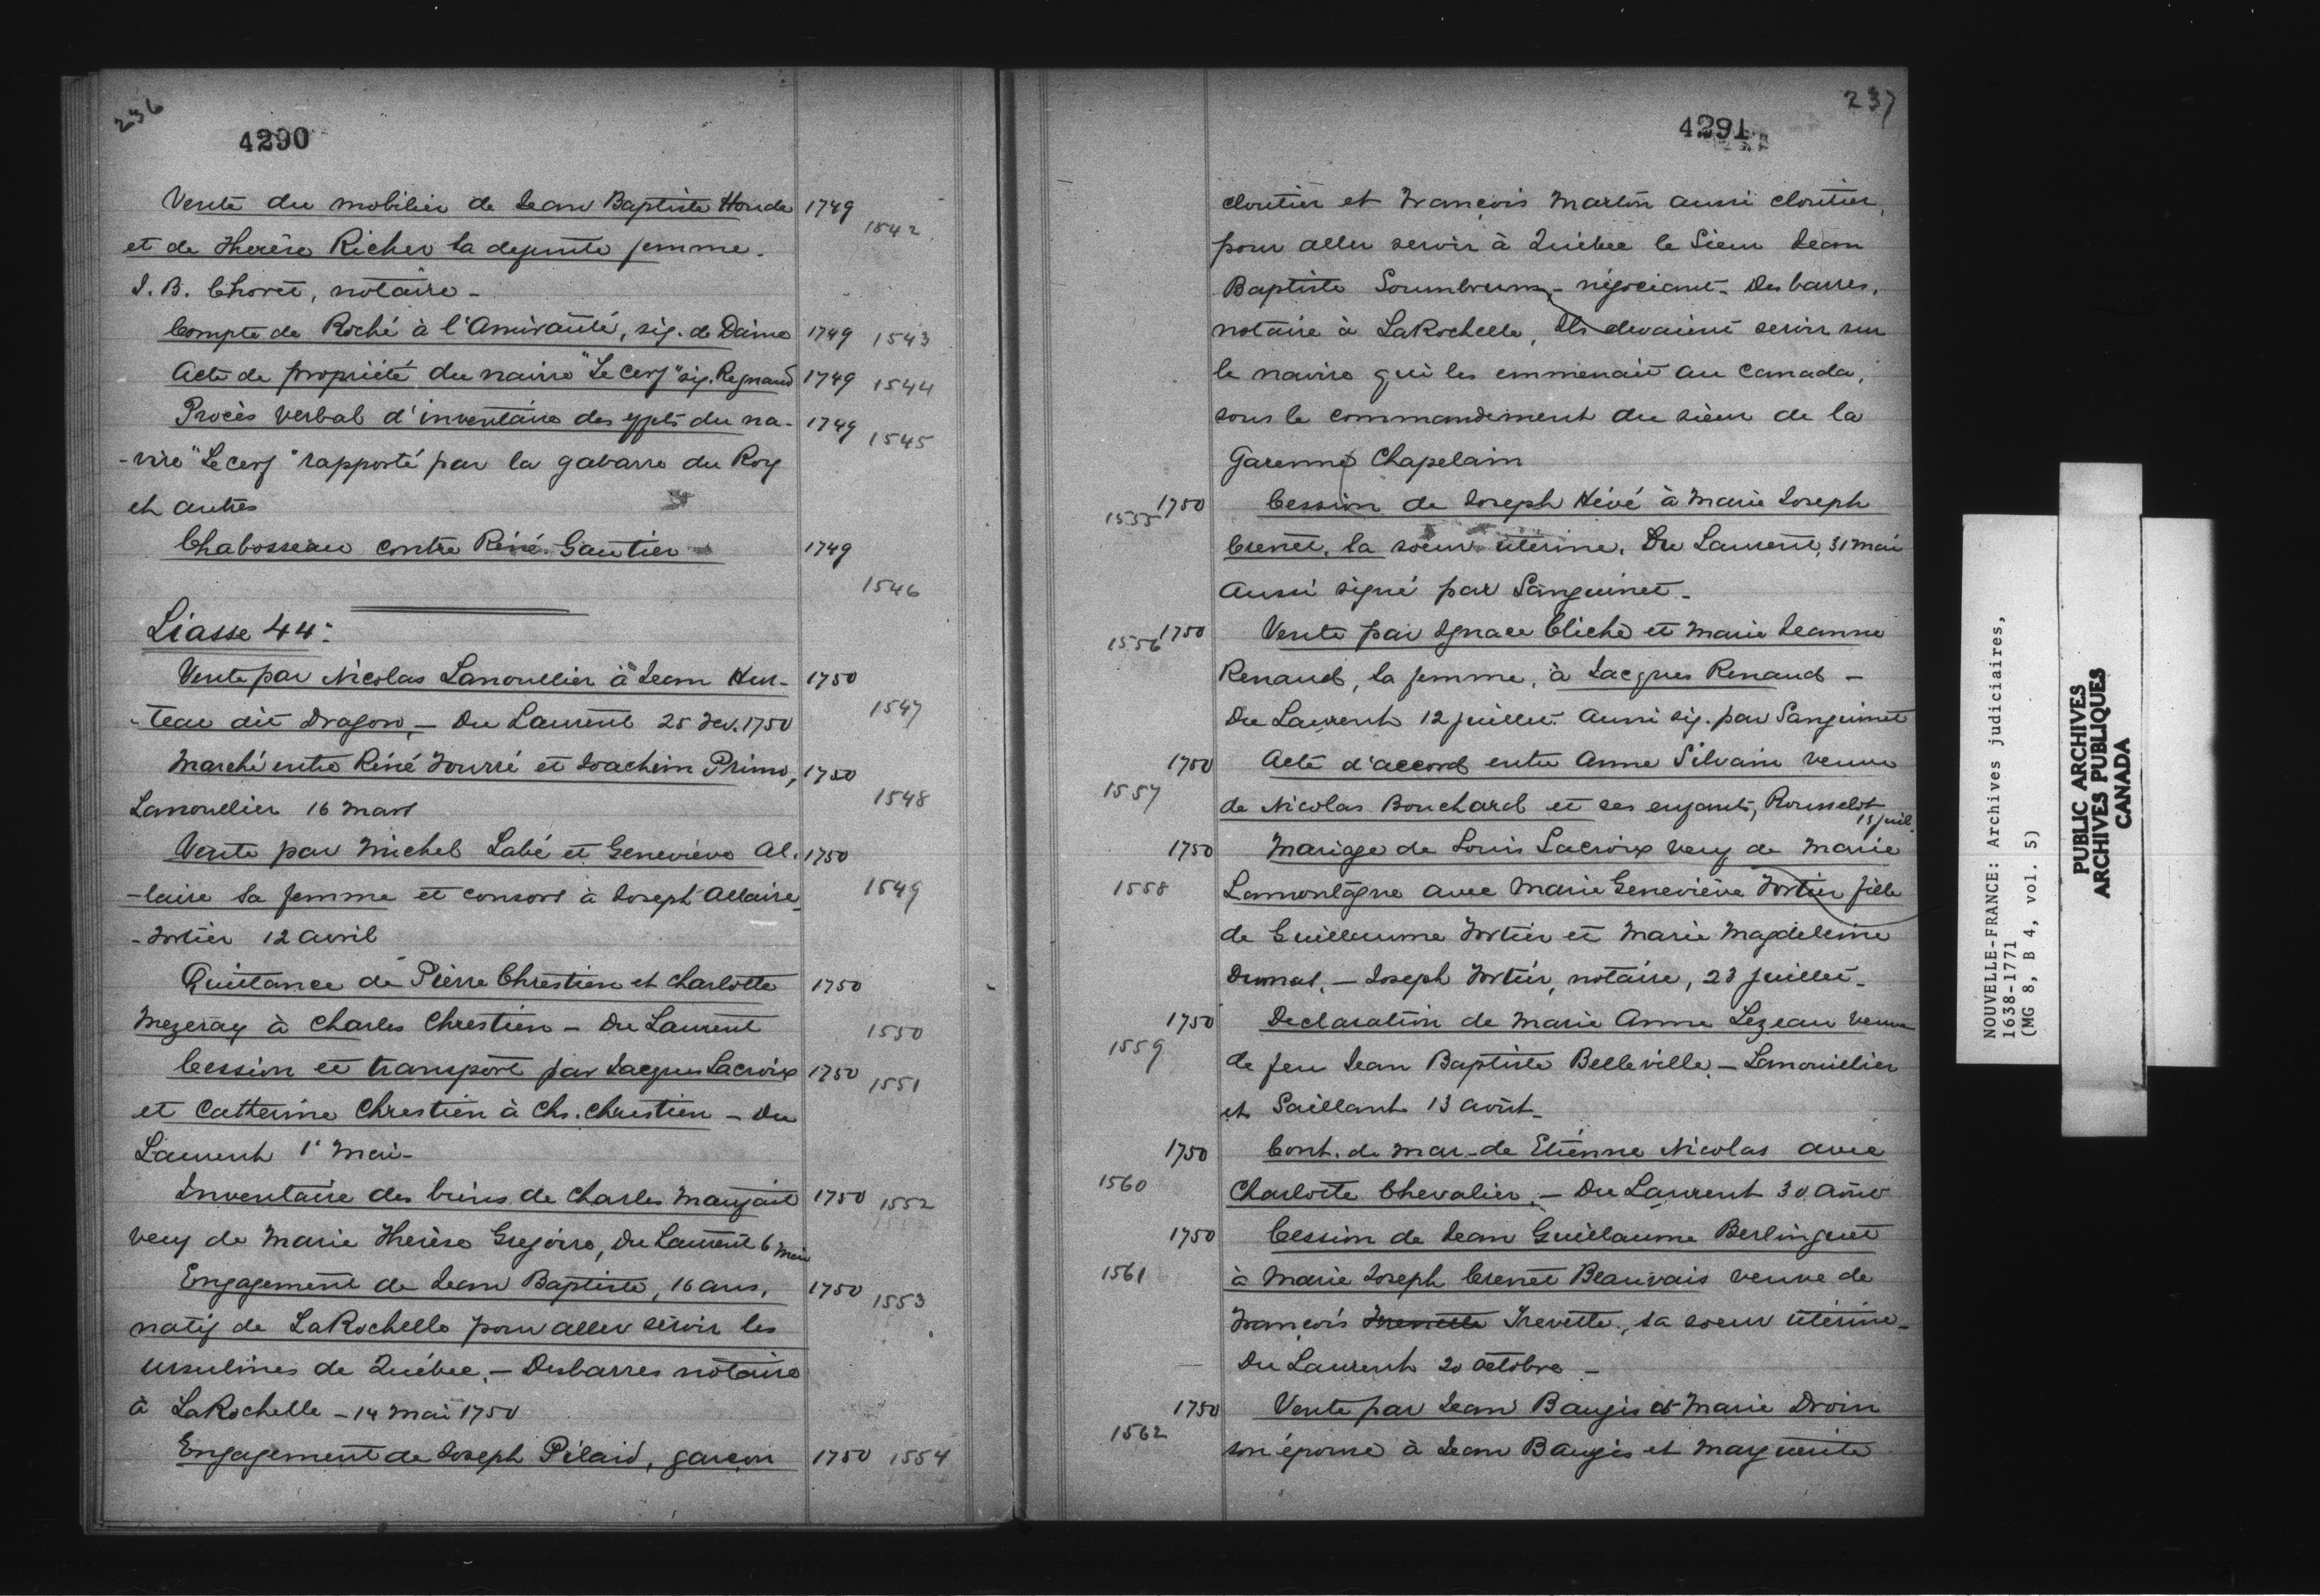 236
4290
Vente du mobilier de Jean Baptiste Houde 1749 1542
et de Therèse Richer la defunte femme.
J. B. Choret, notaire -
Compte de Roché à l'Amirauté, sig. de Daine 1749 1543
Acte de propriété du navire "Le Cerf" sig. Regnaud 1749 1544
Procès verbal d'inventaire des effets du na- 1749 1545
-vire "Le Cerf" rapporté par la gabarre du Roy
et autres
Chabosseau contre Réné Gautier 1749
1546
Liasse 44:
Vente par Nicolas Lanoullier à Jean Hur- 1750
-teau dit Dragon, - Du Laurent 25 fev. 1750 1547
Marché entre Réné Fourré et Joachim Primo, 1750
Lanoullier 16 mars 1548
Vente par Michel Labé et Geneviève Al- 1750
-laire sa femme et consors à Joseph Allaire 1549
- Fortier 12 avril
Quittance de Pierre Chrestien et Charlotte 1750
Mezeray à Charles Chrestien - Du Laurent 1550
Cession et transport par Jacques Lacroix 1750 1551
et Catherine Chrestien à Chs. Chrestien - Du
Laurent 1r Mai -
Inventaire des biens de Charles Maufait 1750 1552
veuf de Marie Thérèse Gregoire, Du Laurent 6 mai
Engagement de Jean Baptiste, 16 ans, 1750 1553
natif de LaRochelle pour aller servir les
Ursulines de Québec. - Desbarres notaire
à LaRochelle - 14 mai 1750
Engagement de Joseph Pilard, garçon 1750 1554
237
4291
cloutier et François Martin aussi cloutier,
pour aller servir à Québec le Sieur Jean
Baptiste Soumbrum, - négociant. Desbarres,
notaire à LaRochelle, Ils devaient servir sur
le navire qui les emmenait au Canada,
sous le commandement du sieur de la
Garenne Chapelain
1555 1750 Cession de Joseph Hévé à Marie Joseph
Crenet, la soeur utérine. Du Laurent, 31 mai
Aussi signé par Sanguinet -
1556 1750 Vente par Ignace Cliche et Marie Jeanne
Renaud, la femme, à Jacques Renaud -
Du Laurent 12 juillet. Aussi sig. par Sanguinet
1750 Acte d'accord entre Anne Silvain veuve
1557 de Nicolas Bouchard et ses enfants, Rousselot
13 juil.
1750 Mariage de Louis Lacroix veuf de Marie
1558 Lamontagne avec Marie Geneviève Fortier fille
de Guillaume Fortier et Marie Magdeleine
Drunat. - Joseph Fortier, notaire, 23 juillet -
1750 Declaration de Marie Anne Lezeau veuve
1559 de feu Jean Baptiste Belleville. - Lanouillier
et Saillant 13 août -
1750 Cont. de mar. de Etienne Nicolas avec
1560 Charlotte Chevalier. - Du Laurent 30 août
1750 Cession de Jean Guillaume Berlinguet
1561 à Marie Joseph Crenet Beauvais veuve de
François Trevette, sa soeur utérine -
Du Laurent 20 octobre -
1750 Vente par Jean Baugis et Marie Droin
1562 son épouse à Jean Baugis et Marguerite
NOUVELLE-FRANCE: Archives judiciaires,
1638-1771
(MG 8, B 4, vol. 5)
PUBLIC ARCHIVES
ARCHIVES PUBLIQUES
CANADA